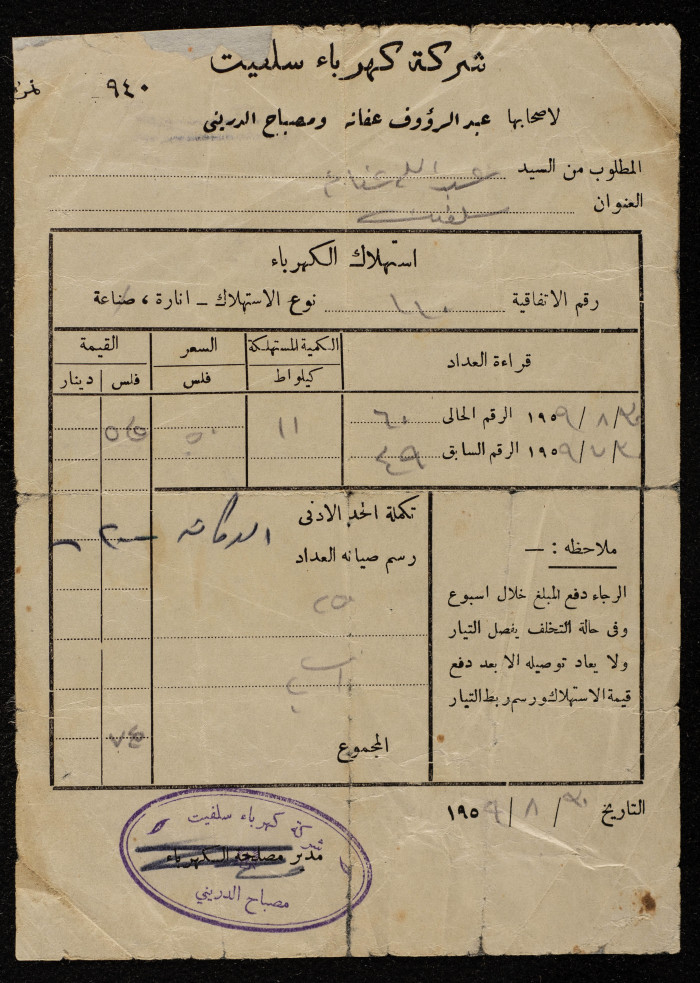 شركة كهرباء سلفيت
٩٤٠
لاصحابها عبد الرؤوف عفانه ومصباح الدريني
المطلوب من السيد عبد الله
العنوان سلفيت
استهلاك الكهرباء
رقم الاتفاقية ١١٠ نوع الاستهلاك - انارة ، صناعة
قراءة العداد الكمية المستهلكة السعر القيمة
كيلواط فلس فلس دينار
٣٠/ ٨/ ١٩٥٩ الرقم الحالى ٦٠ ١١ ٥٠
٣٠/ ٧/ ١٩٥٩ الرقم السابق ٤٩
تكملة الحد الادنى
رسم صيانه العداد
المجموع
ملاحظه : —
الرجاء دفع المبلغ خلال اسبوع
وفى حالة التخلف يفصل التيار
ولا يعاد توصيله الا بعد دفع
قيمة الاستهلاك ورسم ربط التيار
التاريخ ٣٠/ ٨/ ١٩٥٩
شركة كهرباء سلفيت
مدير مصلحة الكهرباء
مصباح الدريني